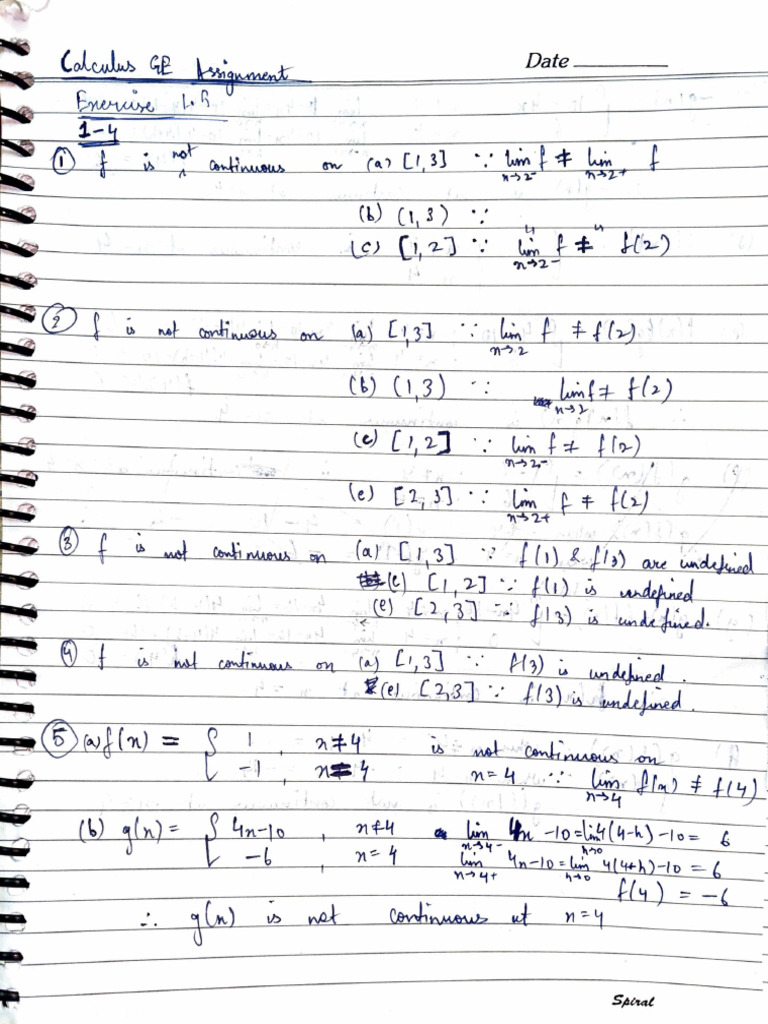 Calculus GE Assignment Date
Exercise 1.5
1-4
① f is not continuous on (a) [1,3] ∵ lim x→2- f ≠ lim x→2+ f
(b) (1,3) ∵ " "
(c) [1,2] ∵ lim x→2- f ≠ f(2)
② f is not continuous on (a) [1,3] ∵ lim x→2 f ≠ f(2)
(b) (1,3) ∵ lim x→2 f ≠ f(2)
(c) [1,2] ∵ lim x→2- f ≠ f(2)
(e) [2,3] ∵ lim x→2+ f ≠ f(2)
③ f is not continuous on (a) [1,3] ∵ f(1) & f(3) are undefined
(c) [1,2] ∵ f(1) is undefined
(e) [2,3] ∵ f(3) is undefined.
④ f is not continuous on (a) [1,3] ∵ f(3) is undefined.
(e) [2,3] ∵ f(3) is undefined.
⑤ (a) f(x) = { 1 , x≠4 is not continuous on
-1 , x=4 x=4 ∵ lim x→4 f(x) ≠ f(4)
(b) g(x) = { 4x-10 , x≠4 lim x→4- 4x-10 = lim h→0 4(4-h)-10 = 6
-6 , x=4 lim x→4+ 4x-10 = lim h→0 4(4+h)-10 = 6
f(4) = -6
∴ g(x) is not continuous at x=4
Spiral